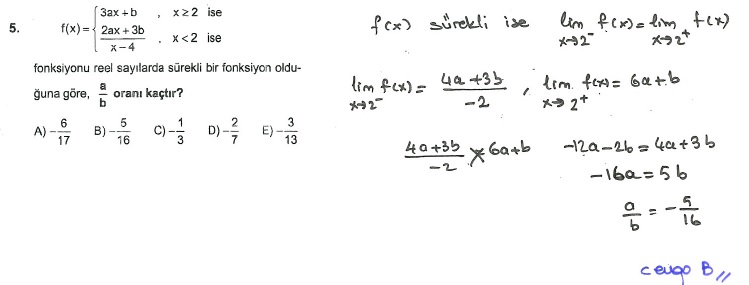 5. f(x) = { 3ax + b , x ≥ 2 ise
2ax + 3b / x − 4 , x < 2 ise
fonksiyonu reel sayılarda sürekli bir fonksiyon oldu-
ğuna göre, a/b oranı kaçtır?
A) −6/17 B) −5/16 C) −1/3 D) −2/7 E) −3/13
f(x) sürekli ise lim x→2⁻ f(x) = lim x→2⁺ f(x)
lim x→2⁻ f(x) = 4a+3b / −2 , lim x→2⁺ f(x) = 6a+b
4a+3b / −2 = 6a+b
−12a−2b = 4a+3b
−16a = 5b
a/b = −5/16
cevap B //